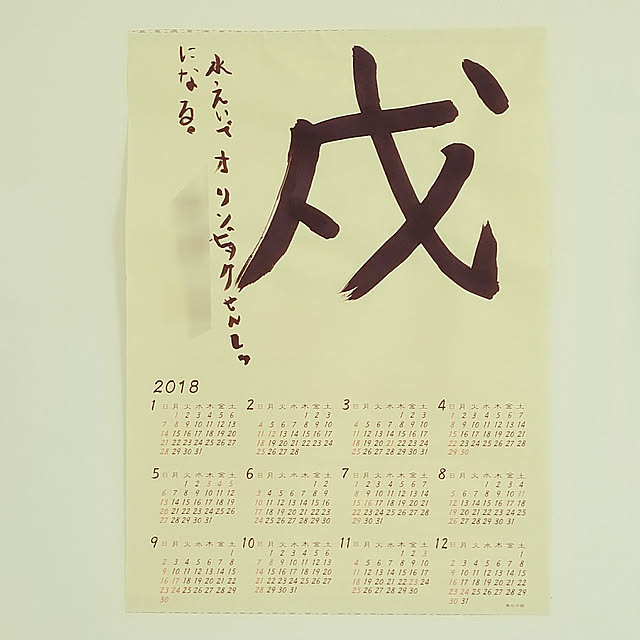 戌
水えいで オリンピックせんしゅ
になる。
2018
1 日 月 火 水 木 金 土
1 2 3 4 5 6
7 8 9 10 11 12 13
14 15 16 17 18 19 20
21 22 23 24 25 26 27
28 29 30 31
2 日 月 火 水 木 金 土
1 2 3
4 5 6 7 8 9 10
11 12 13 14 15 16 17
18 19 20 21 22 23 24
25 26 27 28
3 日 月 火 水 木 金 土
1 2 3
4 5 6 7 8 9 10
11 12 13 14 15 16 17
18 19 20 21 22 23 24
25 26 27 28 29 30 31
4 日 月 火 水 木 金 土
1 2 3 4 5 6 7
8 9 10 11 12 13 14
15 16 17 18 19 20 21
22 23 24 25 26 27 28
29 30
5 日 月 火 水 木 金 土
1 2 3 4 5
6 7 8 9 10 11 12
13 14 15 16 17 18 19
20 21 22 23 24 25 26
27 28 29 30 31
6 日 月 火 水 木 金 土
1 2
3 4 5 6 7 8 9
10 11 12 13 14 15 16
17 18 19 20 21 22 23
24 25 26 27 28 29 30
7 日 月 火 水 木 金 土
1 2 3 4 5 6 7
8 9 10 11 12 13 14
15 16 17 18 19 20 21
22 23 24 25 26 27 28
29 30 31
8 日 月 火 水 木 金 土
1 2 3 4
5 6 7 8 9 10 11
12 13 14 15 16 17 18
19 20 21 22 23 24 25
26 27 28 29 30 31
9 日 月 火 水 木 金 土
1
2 3 4 5 6 7 8
9 10 11 12 13 14 15
16 17 18 19 20 21 22
23 24 25 26 27 28 29
30
10 日 月 火 水 木 金 土
1 2 3 4 5 6
7 8 9 10 11 12 13
14 15 16 17 18 19 20
21 22 23 24 25 26 27
28 29 30 31
11 日 月 火 水 木 金 土
1 2 3
4 5 6 7 8 9 10
11 12 13 14 15 16 17
18 19 20 21 22 23 24
25 26 27 28 29 30
12 日 月 火 水 木 金 土
1
2 3 4 5 6 7 8
9 10 11 12 13 14 15
16 17 18 19 20 21 22
23 24 25 26 27 28 29
30 31